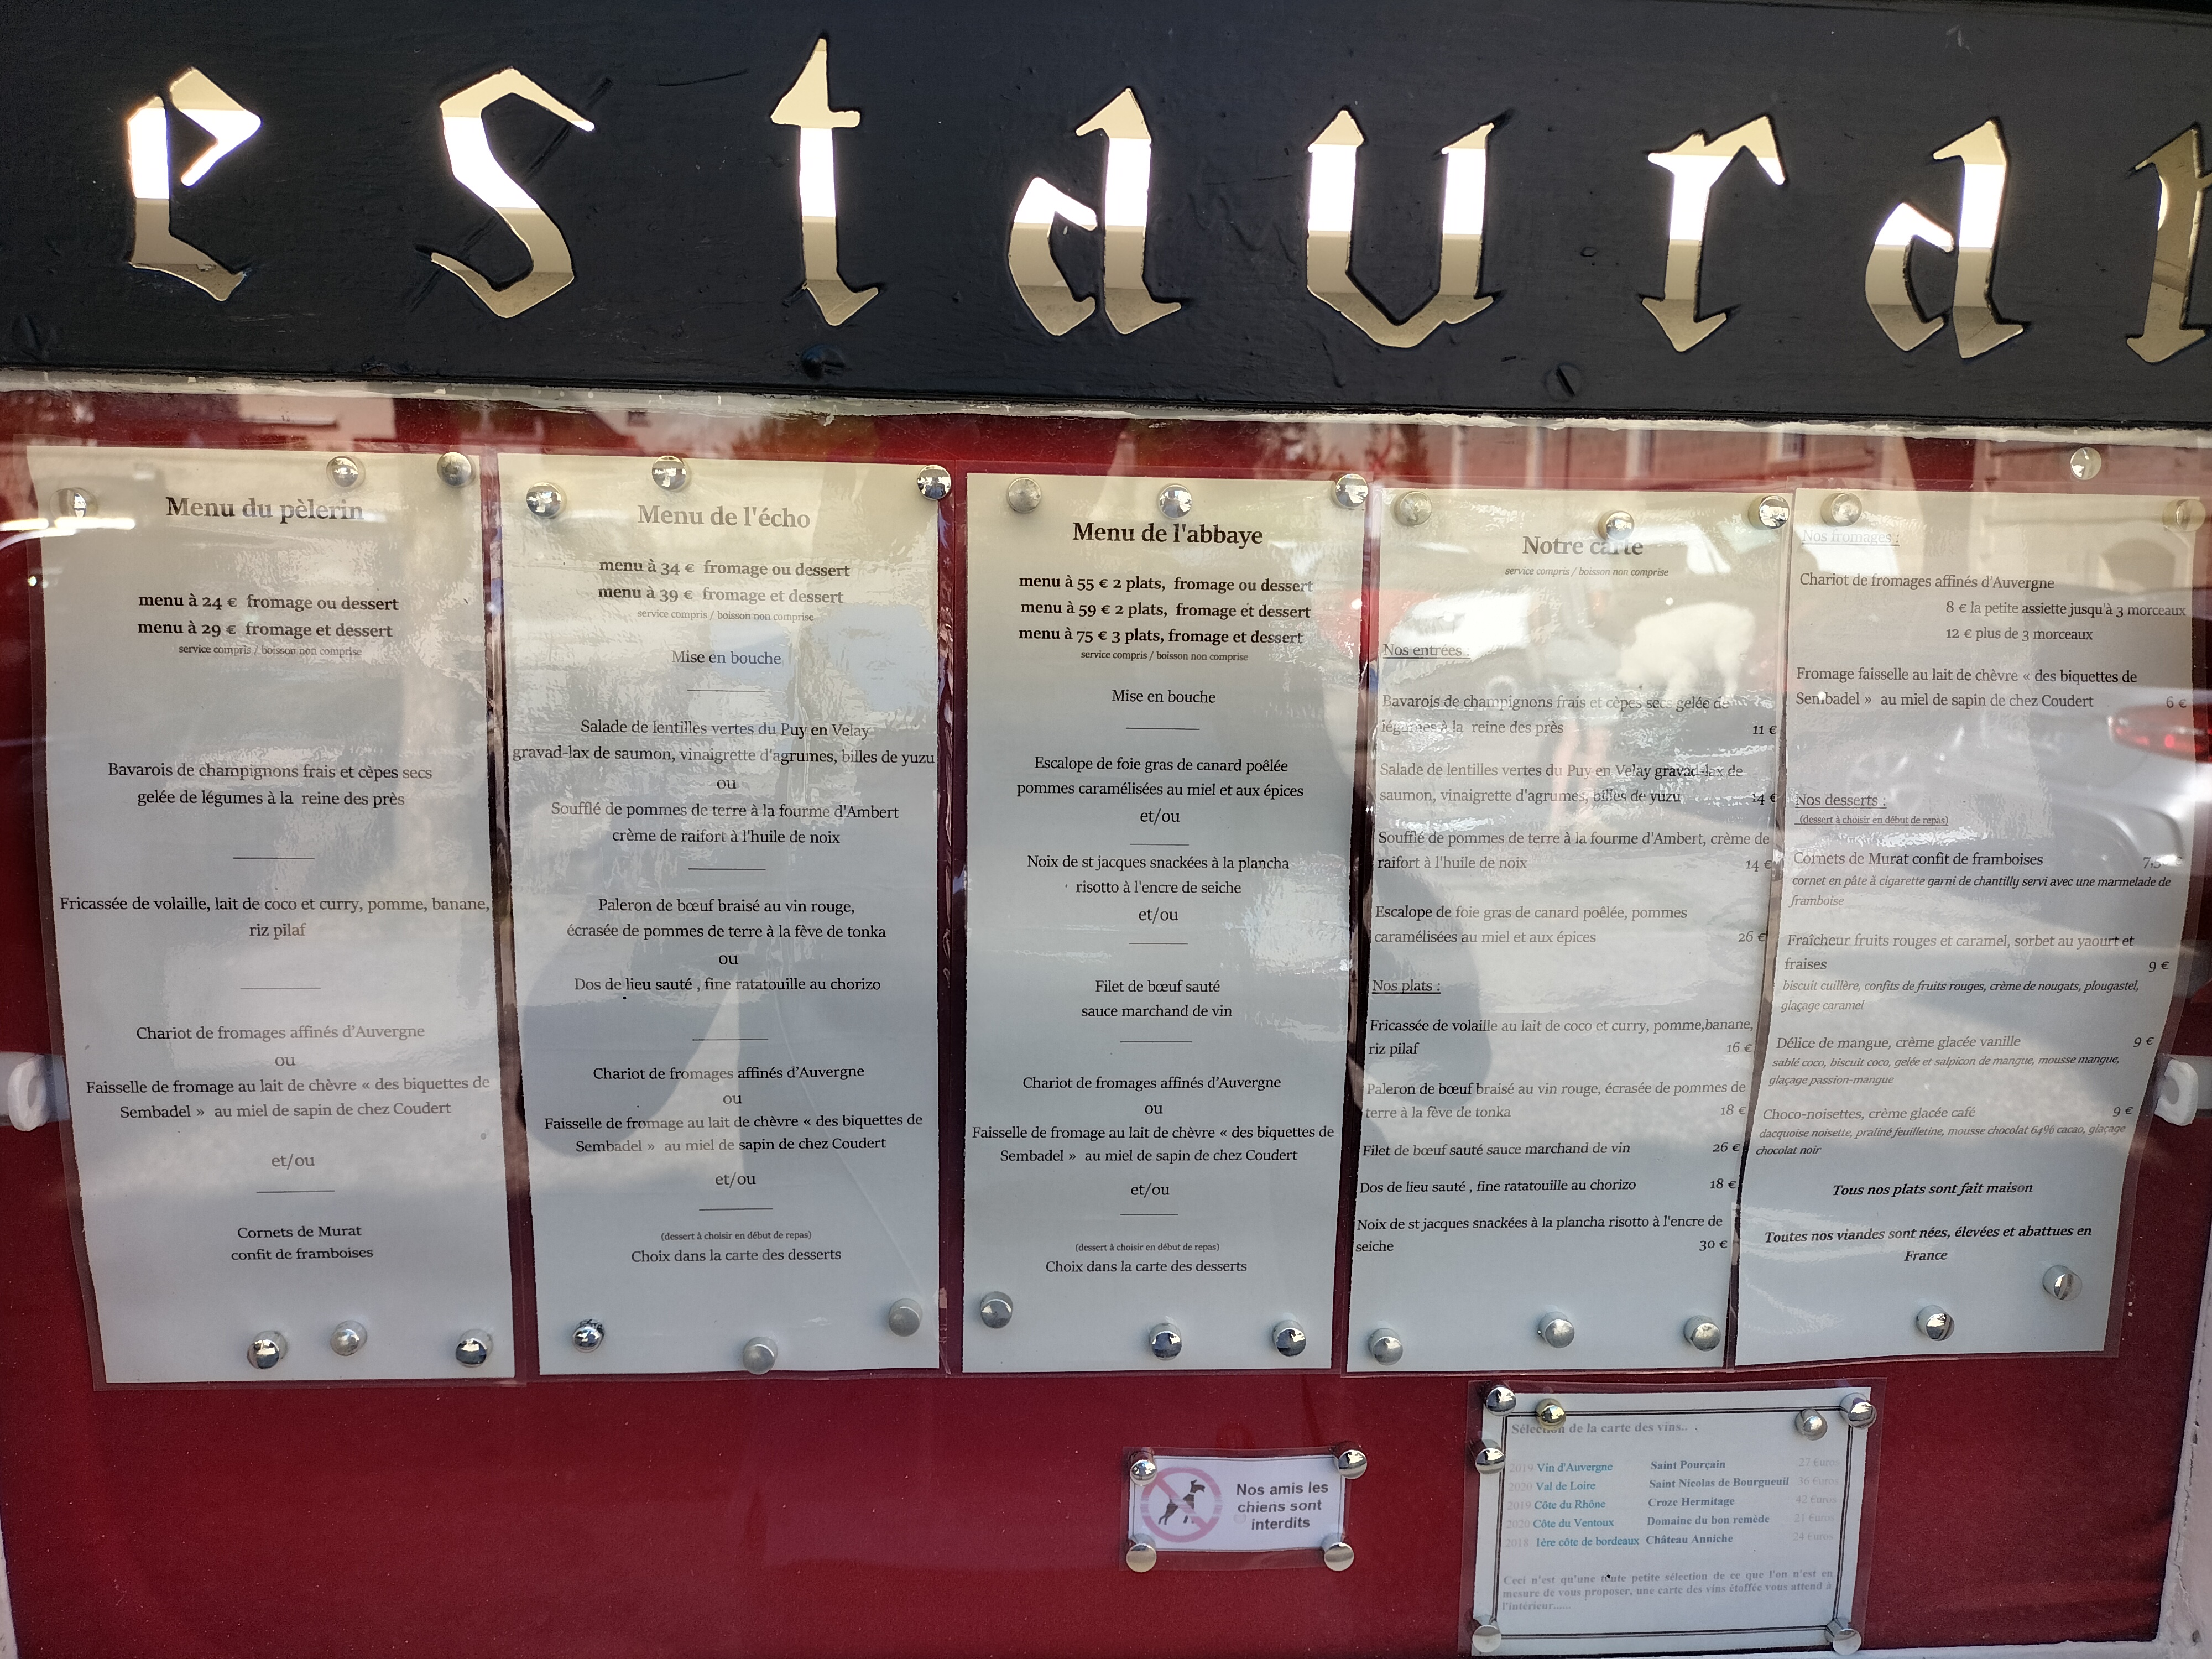 estauran
Menu du pèlerin
menu à 24 € fromage ou dessert
menu à 29 € fromage et dessert
service compris / boisson non comprise
Bavarois de champignons frais et cèpes secs
gelée de légumes à la reine des près
Fricassée de volaille, lait de coco et curry, pomme, banane,
riz pilaf
Chariot de fromages affinés d'Auvergne
ou
Faisselle de fromage au lait de chèvre « des biquettes de
Sembadel » au miel de sapin de chez Coudert
et/ou
Cornets de Murat
confit de framboises
Menu de l'écho
menu à 34 € fromage ou dessert
menu à 39 € fromage et dessert
service compris / boisson non comprise
Mise en bouche
Salade de lentilles vertes du Puy en Velay
gravad-lax de saumon, vinaigrette d'agrumes, billes de yuzu
ou
Soufflé de pommes de terre à la fourme d'Ambert
crème de raifort à l'huile de noix
Paleron de bœuf braisé au vin rouge,
écrasée de pommes de terre à la fève de tonka
ou
Dos de lieu sauté , fine ratatouille au chorizo
Chariot de fromages affinés d'Auvergne
ou
Faisselle de fromage au lait de chèvre « des biquettes de
Sembadel » au miel de sapin de chez Coudert
et/ou
(dessert à choisir en début de repas)
Choix dans la carte des desserts
Menu de l'abbaye
menu à 55 € 2 plats, fromage ou dessert
menu à 59 € 2 plats, fromage et dessert
menu à 75 € 3 plats, fromage et dessert
service compris / boisson non comprise
Mise en bouche
Escalope de foie gras de canard poêlée
pommes caramélisées au miel et aux épices
et/ou
Noix de st jacques snackées à la plancha
risotto à l'encre de seiche
et/ou
Filet de bœuf sauté
sauce marchand de vin
Chariot de fromages affinés d'Auvergne
ou
Faisselle de fromage au lait de chèvre « des biquettes de
Sembadel » au miel de sapin de chez Coudert
et/ou
(dessert à choisir en début de repas)
Choix dans la carte des desserts
Notre carte
service compris / boisson non comprise
Nos entrées :
Bavarois de champignons frais et cèpes secs gelée de
légumes à la reine des près 11 €
Salade de lentilles vertes du Puy en Velay gravad-lax de
saumon, vinaigrette d'agrumes, billes de yuzu 14 €
Soufflé de pommes de terre à la fourme d'Ambert, crème de
raifort à l'huile de noix 14 €
Escalope de foie gras de canard poêlée, pommes
caramélisées au miel et aux épices 26 €
Nos plats :
Fricassée de volaille au lait de coco et curry, pomme,banane,
riz pilaf 16 €
Paleron de bœuf braisé au vin rouge, écrasée de pommes de
terre à la fève de tonka 18 €
Filet de bœuf sauté sauce marchand de vin 26 €
Dos de lieu sauté , fine ratatouille au chorizo 18 €
Noix de st jacques snackées à la plancha risotto à l'encre de
seiche 30 €
Nos fromages :
Chariot de fromages affinés d'Auvergne
8 € la petite assiette jusqu'à 3 morceaux
12 € plus de 3 morceaux
Fromage faisselle au lait de chèvre « des biquettes de
Sembadel » au miel de sapin de chez Coudert 6 €
Nos desserts :
(dessert à choisir en début de repas)
Cornets de Murat confit de framboises
cornet en pâte à cigarette garni de chantilly servi avec une marmelade de
framboise
Fraîcheur fruits rouges et caramel, sorbet au yaourt et
fraises 9 €
biscuit cuillère, confits de fruits rouges, crème de nougats, plougastel,
glaçage caramel
Délice de mangue, crème glacée vanille 9 €
sablé coco, biscuit coco, gelée et salpicon de mangue, mousse mangue,
glaçage passion-mangue
Choco-noisettes, crème glacée café 9 €
dacquoise noisette, praliné feuilletine, mousse chocolat 64% cacao, glaçage
chocolat noir
Tous nos plats sont fait maison
Toutes nos viandes sont nées, élevées et abattues en
France
Nos amis les
chiens sont
interdits
Sélection de la carte des vins..
2019 Vin d'Auvergne Saint Pourçain 27 €uros
2020 Val de Loire Saint Nicolas de Bourgueuil 36 €uros
2019 Côte du Rhône Croze Hermitage 42 €uros
2020 Côte du Ventoux Domaine du bon remède 21 €uros
2018 1ère côte de bordeaux Château Anniche 24 €uros
Ceci n'est qu'une toute petite sélection de ce que l'on n'est en
mesure de vous proposer, une carte des vins étoffée vous attend à
l'intérieur......